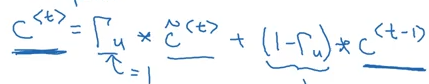 c^{<t>} = Γ_u * c̃^{<t>} + (1-Γ_u) * c^{<t-1>}
=1